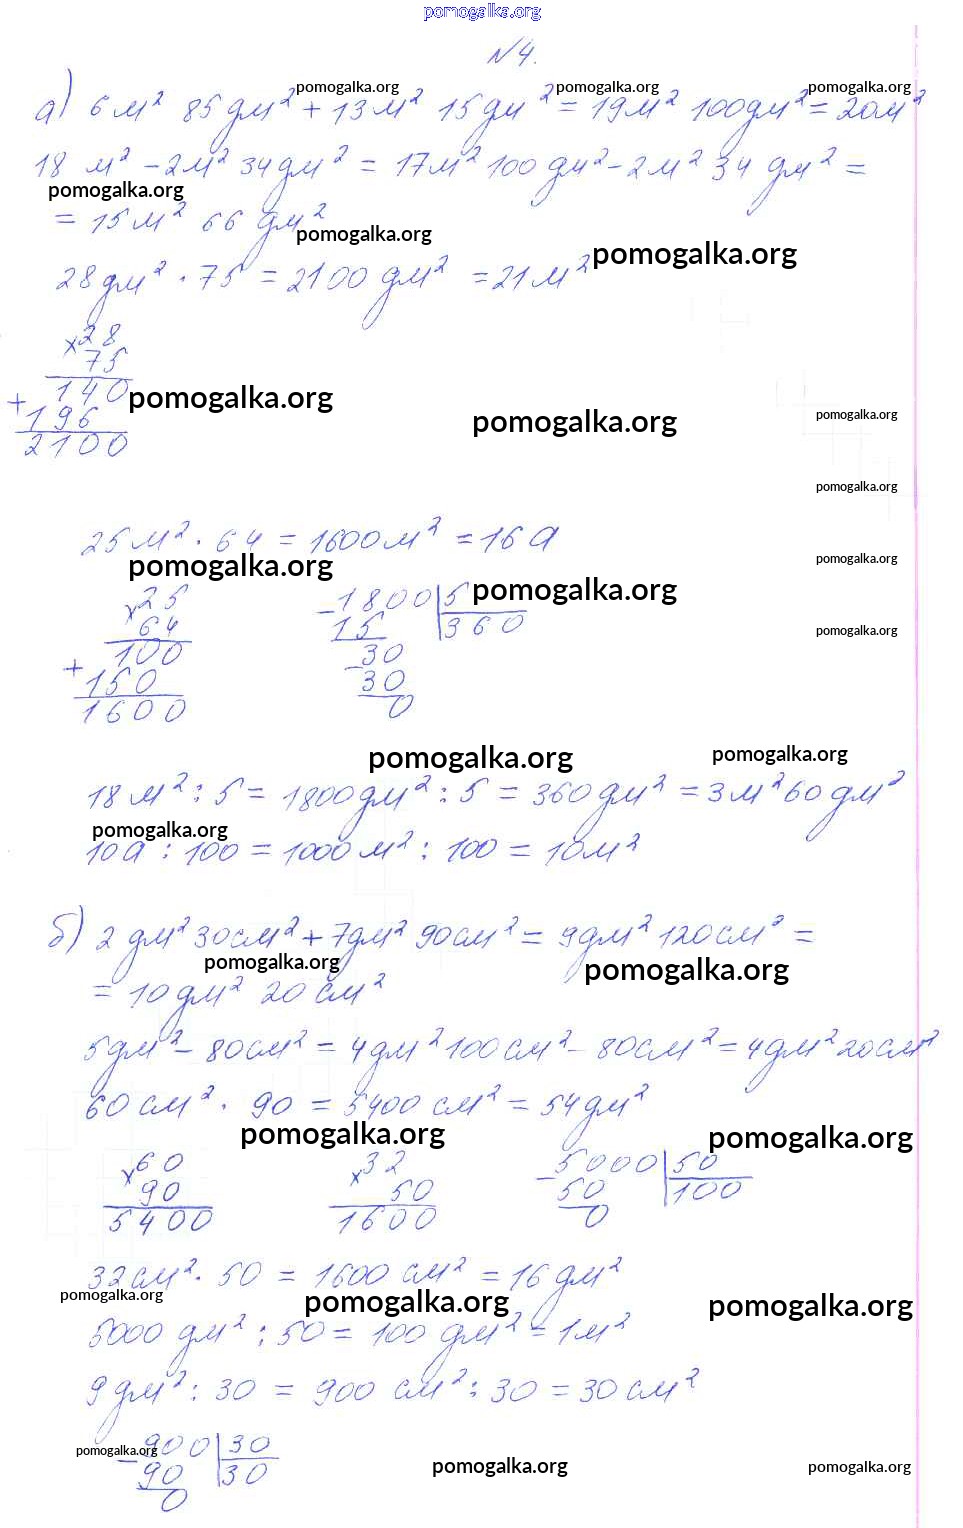 pomogalka.org
№4.
pomogalka.org pomogalka.org pomogalka.org
а) 6 м² 85 дм² + 13 м² 15 дм² = 19 м² 100 дм² = 20 м²
18 м² - 2 м² 34 дм² = 17 м² 100 дм² - 2 м² 34 дм² =
pomogalka.org
= 15 м² 66 дм²
pomogalka.org
pomogalka.org
28 дм² · 75 = 2100 дм² = 21 м²
× 28
75
140
pomogalka.org
+ 196
pomogalka.org pomogalka.org
2100
pomogalka.org
25 м² · 64 = 1600 м² = 16 а
pomogalka.org pomogalka.org
pomogalka.org
× 25 - 1800 | 5
64 15 360
pomogalka.org
100 30
+ 150 - 30
1600 0
pomogalka.org pomogalka.org
18 м² : 5 = 1800 дм² : 5 = 360 дм² = 3 м² 60 дм²
pomogalka.org
10 а : 100 = 1000 м² : 100 = 10 м²
б) 2 дм² 30 см² + 7 дм² 90 см² = 9 дм² 120 см² =
pomogalka.org pomogalka.org
= 10 дм² 20 см²
5 дм² - 80 см² = 4 дм² 100 см² - 80 см² = 4 дм² 20 см²
60 см² · 90 = 5400 см² = 54 дм²
pomogalka.org pomogalka.org
× 60 × 32 - 5000 | 50
90 50 50 100
5400 1600 0
32 см² · 50 = 1600 см² = 16 дм²
pomogalka.org pomogalka.org pomogalka.org
5000 дм² : 50 = 100 дм² = 1 м²
9 дм² : 30 = 900 см² : 30 = 30 см²
pomogalka.org
- 900 | 30
90 30
pomogalka.org pomogalka.org
0